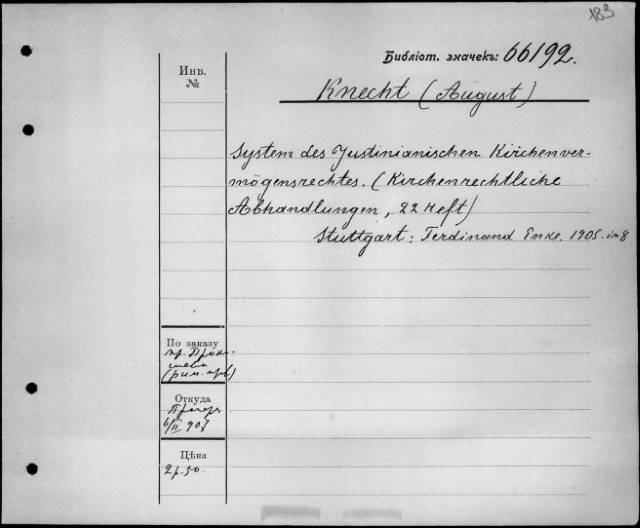 183
Библіот. значекъ: 66192.
Инв.
№
Knecht (August)
System des Justinianischen Kirchenver-
mögensrechtes. (Kirchenrechtliche
Abhandlungen, 22 Heft)
Stuttgart: Ferdinand Enke. 1905. in 8
По заказу
пр.
(рим. пр.)
Откуда
6/II 907
Цѣна
2р.50.